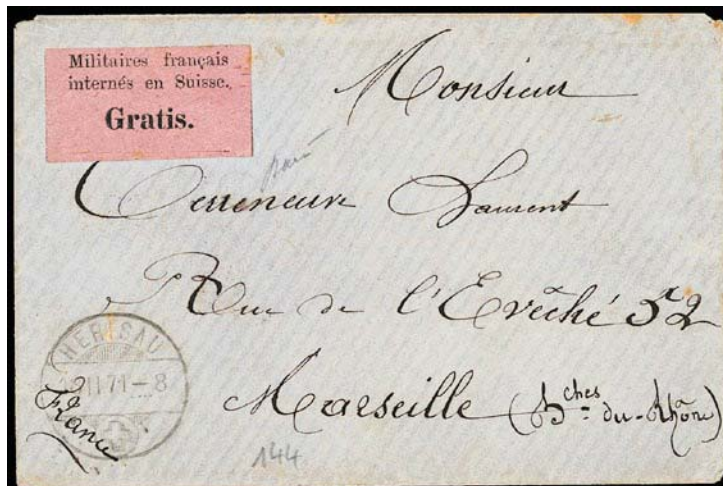 Militaires français
internés en Suisse.
Gratis.
Monsieur
Terreneuve Laurent
Rue de l'Evêché 52
Marseille (Bches du-Rhône)
HERISAU
II 71-8
France
144